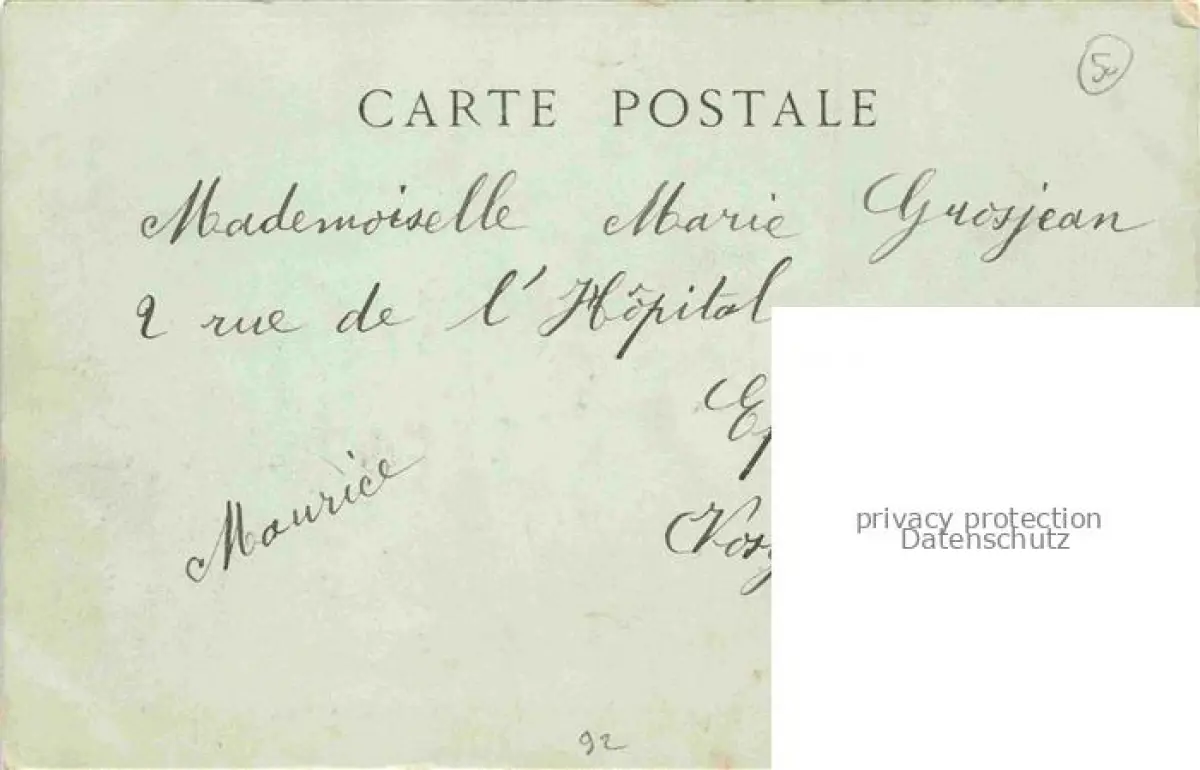 CARTE POSTALE
Mademoiselle Marie Grosjean
2 rue de l'Hôpital
Maurice
privacy protection
Datenschutz
92